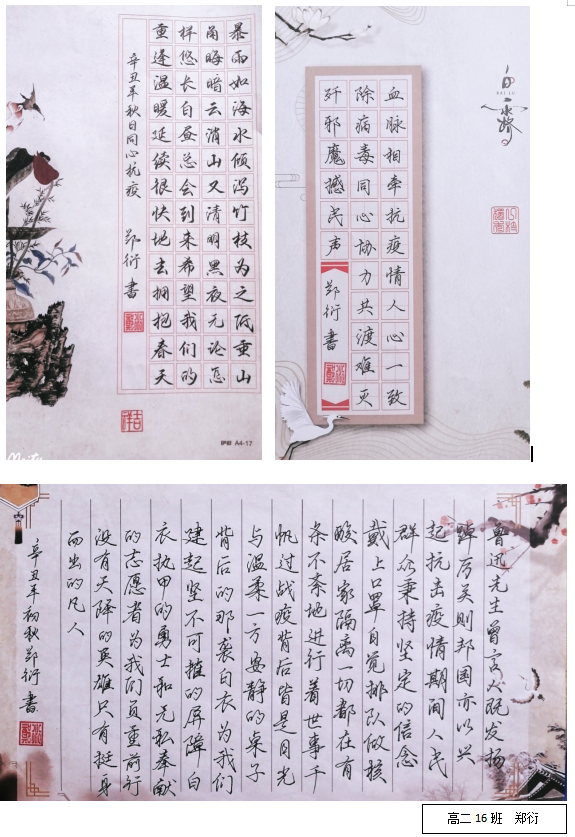 暴雨如海水倾泻竹枝为之低重山
晦暗云消山又清明黑夜无论怎
样悠长白昼总会到来希望我们的
重逢温暖延续很快地去拥抱春天
辛丑年秋日同心抗疫 郑衍書
A4-17
白露
BAI LU
血脉相牵抗疫情人心一致
除病毒同心协力共渡难灭
歼邪魔撼民声
郑衍書
鲁迅先生曾言人既发扬
踔厉矣则邦国亦以兴
起抗击疫情期间人民
群众秉持坚定的信念
戴上口罩自觉排队做核
酸居家隔离一切都在有
条不紊地进行着世事千
帆过战疫背后皆是月光
与温柔一方安静的桌子
背后的那袭白衣为我们
建起坚不可摧的屏障白
衣执甲的勇士和无私奉献
的志愿者为我们负重前行
没有天降的英雄只有挺身
而出的凡人
辛丑年初秋郑衍書
高二16班 郑衍